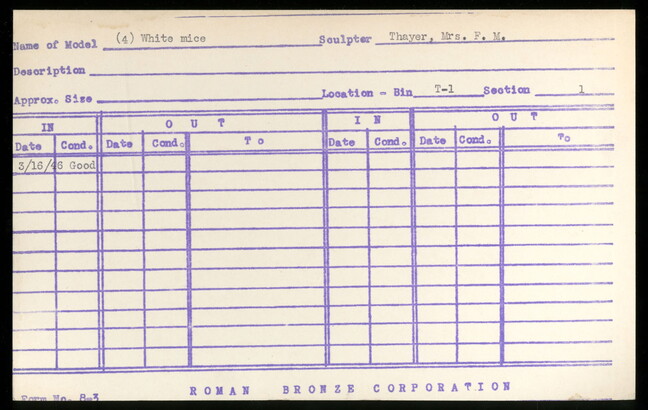 Name of Model (4) White mice Sculptor Thayer, Mrs. F. M.
Description
Approx. Size Location - Bin T-1 Section 1
IN OUT IN OUT
Date Cond. Date Cond. To Date Cond. Date Cond. To
3/16/46 Good
Form No. 8-3 ROMAN BRONZE CORPORATION